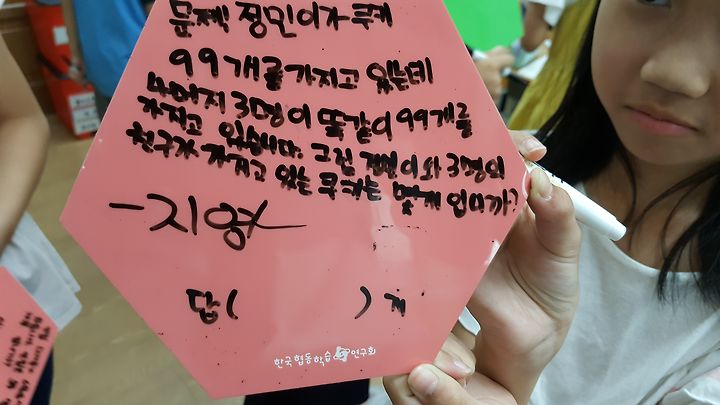 문제: 정민이가 쿠키
99개를 가지고 있는데
나머지 3명이 똑같이 99개를
가지고 있습니다. 그럼 정민이와 3명의
친구가 가지고 있는 쿠키는 몇개 입니까?
-지영
답( )개
한국협동학습연구회